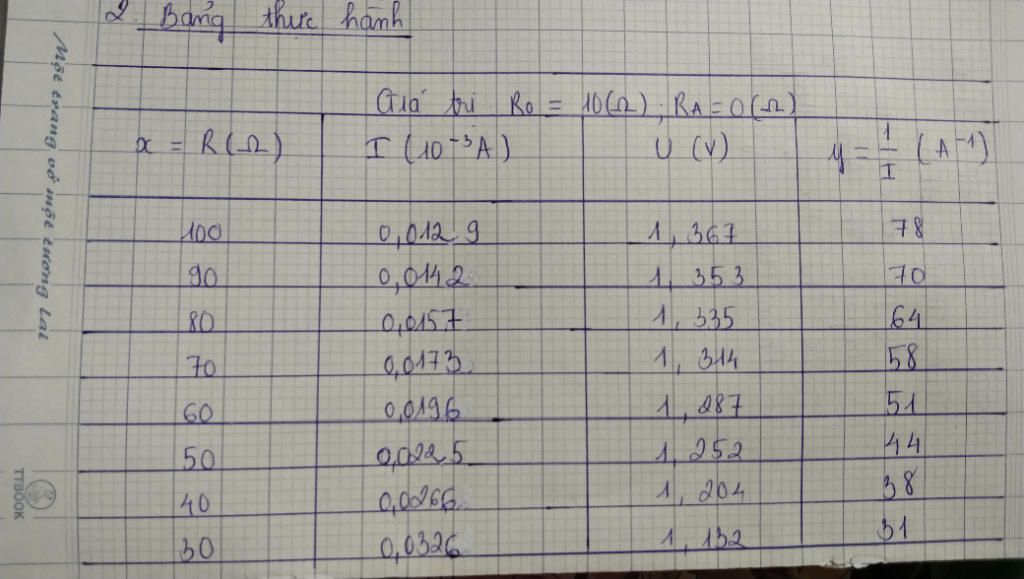 2. Bảng thực hành
Giá trị R0 = 10(Ω); RA = 0(Ω)
x = R(Ω) I (10⁻³A) U (V) y = 1/I (A⁻¹)
100 0,0129 1,367 78
90 0,0142 1,353 70
80 0,0157 1,335 64
70 0,0173 1,314 58
60 0,0196 1,287 51
50 0,0225 1,252 44
40 0,0266 1,204 38
30 0,0326 1,132 31
Một trang vở một tương lai
TTBOOK